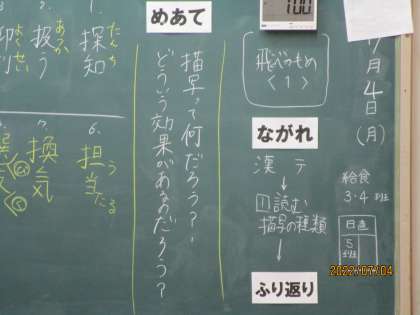 7月4日(月)
給食
3・4班
日直
5班
飛べかもめ
〈1〉
ながれ
漢テ
↓
①読む
描写の種類
↓
ふり返り
めあて
描写って何だろう？
どういう効果があるのだろう？
1. 探知
たんち
2. 扱う
あつか
3.
よくせい
6. 担当
う
たる
7. 換気
1:00
2022/07/04